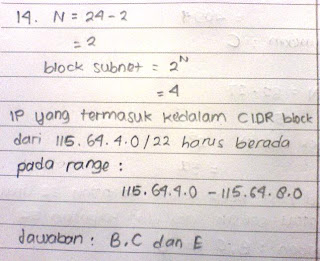 14. N = 24 - 2
= 2
block subnet = 2^N
= 4
IP yang termasuk kedalam CIDR block
dari 115.64.4.0/22 harus berada
pada range :
115.64.4.0 - 115.64.8.0
Jawaban : B, C dan E